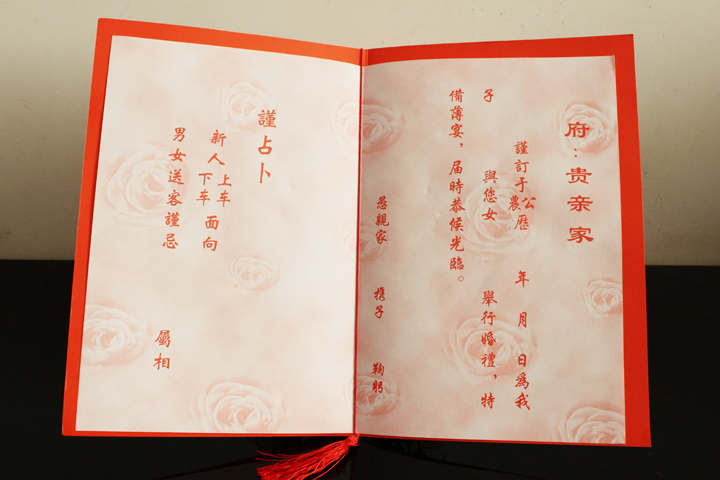 府：贵亲家
謹訂于公農歷 年 月 日為我
子 與您女 舉行婚禮，特
備薄宴，届時恭候光臨。
愚親家 携子 鞠躬
謹占卜
新人上车下车面向
男女送客謹忌
屬相